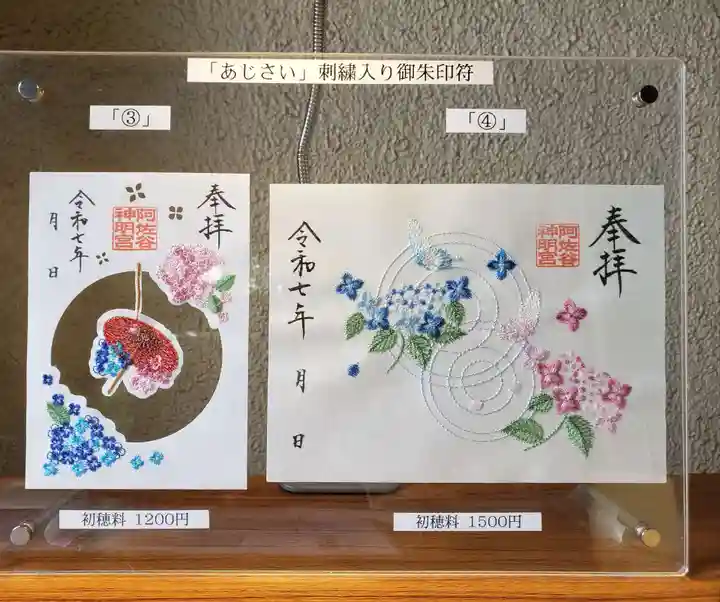 「あじさい」刺繍入り御朱印符
「③」
奉拝
阿佐谷
神明宮
令和七年
月 日
初穂料 1200円
「④」
奉拝
阿佐谷
神明宮
令和七年 月 日
初穂料 1500円